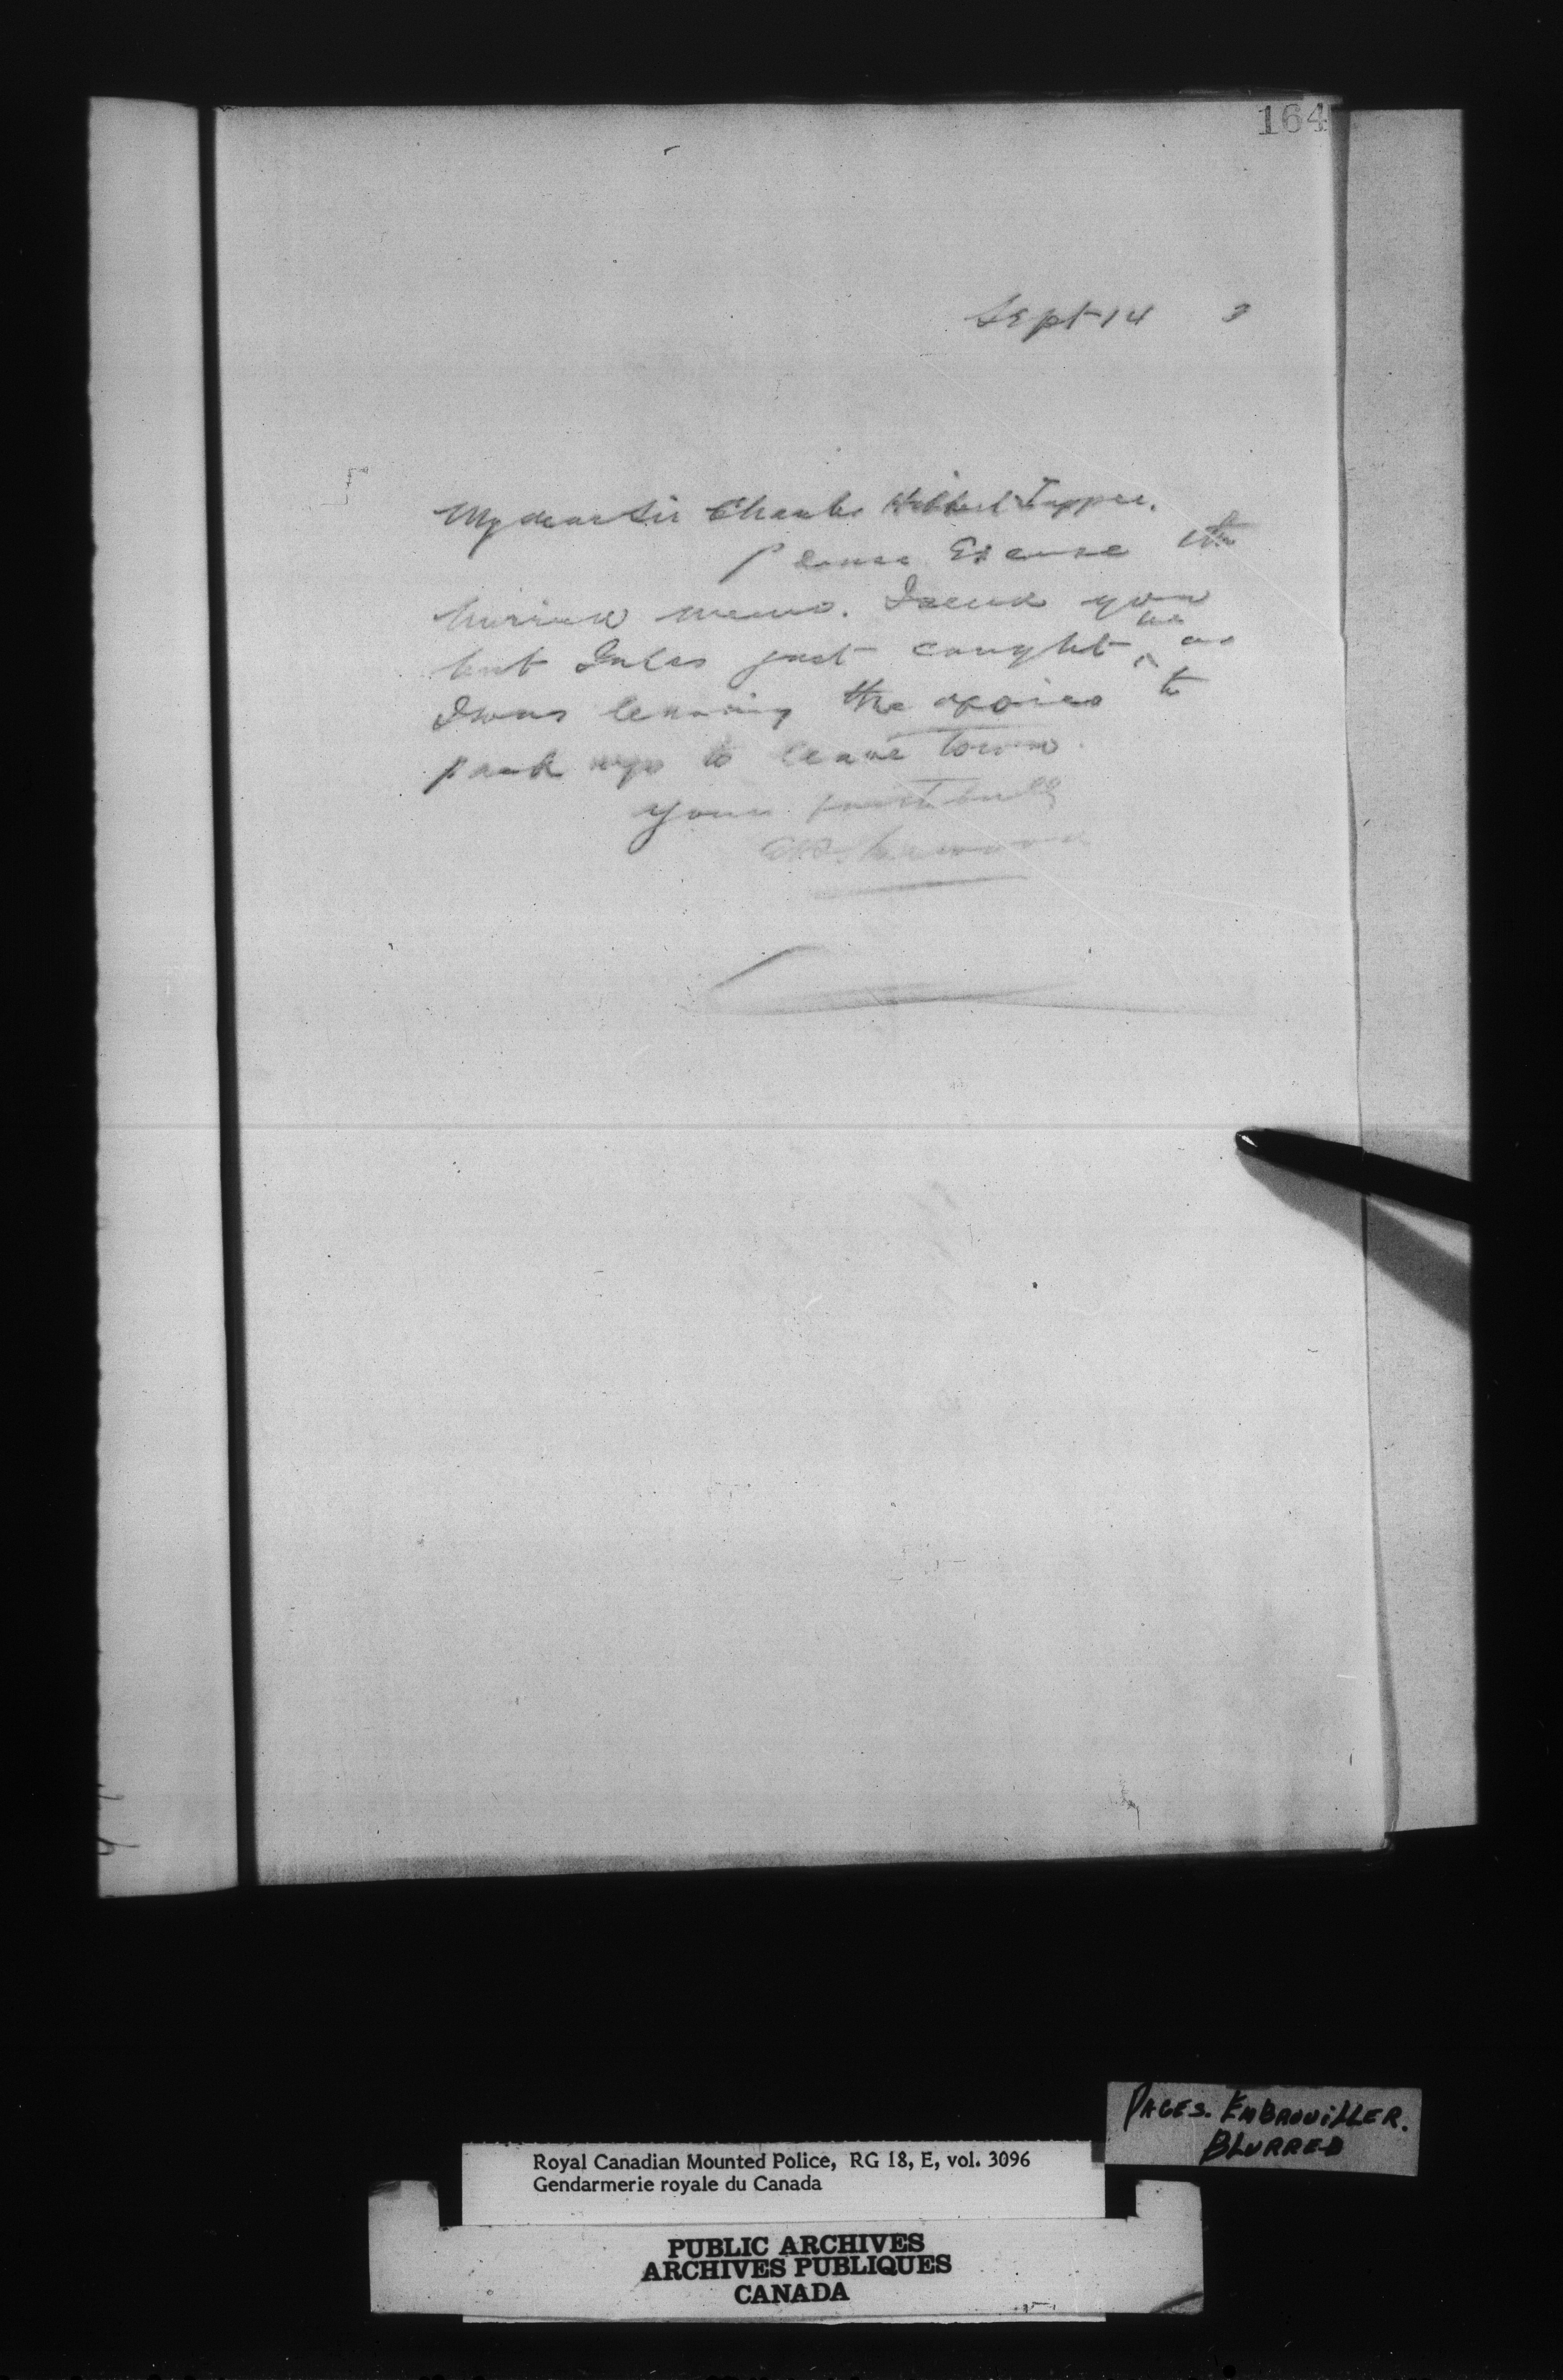 164
Sept 14 3
My dear Sir Charles Hibbert Tupper.
Please Excuse the
hurried memo. I send you
but Gales just caught me as
I was leaving the office to
pack up to leave town.
Yours faithfully
PAGES. EMBROUILLER.
BLURRED
Royal Canadian Mounted Police, RG 18, E, vol. 3096
Gendarmerie royale du Canada
PUBLIC ARCHIVES
ARCHIVES PUBLIQUES
CANADA